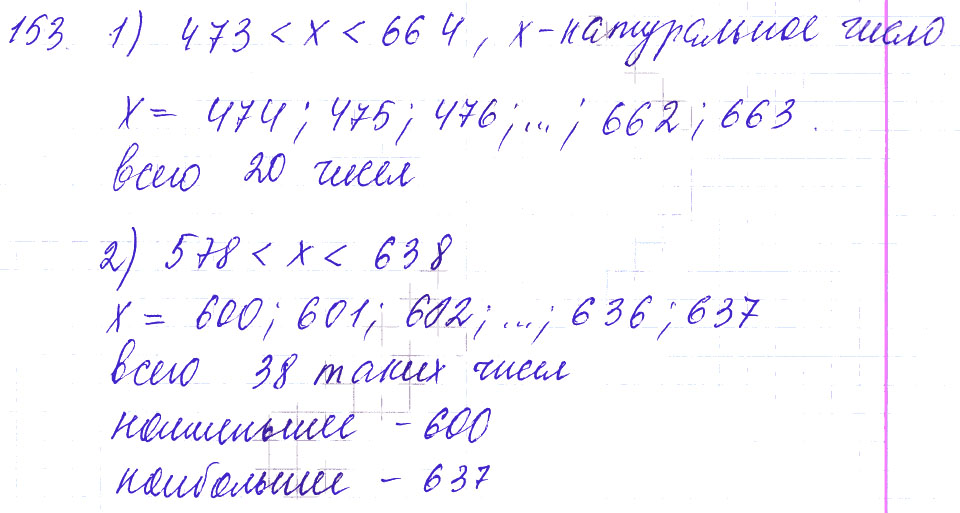 153 1) 473 < x < 664, x-натуральное число
x = 474; 475; 476; ...; 662; 663.
всего 20 чисел
2) 578 < x < 638
x = 600; 601; 602; ...; 636; 637
всего 38 таких чисел
наименьшее - 600
наибольшее - 637